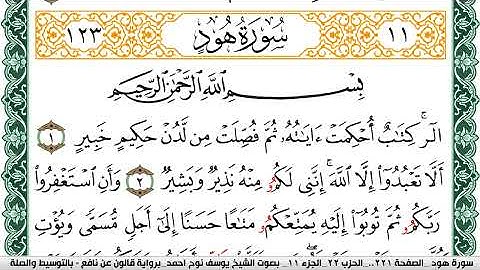 ١١ سُورَةُ هُودٍ ١٢٣
بِسْمِ اللَّهِ الرَّحْمَٰنِ الرَّحِيمِ
الٓرۚ كِتَٰبٌ أُحْكِمَتْ ءَايَٰتُهُۥ ثُمَّ فُصِّلَتْ مِن لَّدُنْ حَكِيمٍ خَبِيرٍ ١
أَلَّا تَعْبُدُوٓا۟ إِلَّا اللَّهَۚ إِنَّنِى لَكُمُۥ مِنْهُ نَذِيرٌ وَبَشِيرٌ ٢ وَأَنِ اسْتَغْفِرُوا۟
رَبَّكُمُۥ ثُمَّ تُوبُوٓا۟ إِلَيْهِ يُمَتِّعْكُمُۥ مَتَٰعًا حَسَنًا إِلَىٰٓ أَجَلٍ مُّسَمًّى وَيُؤْتِ
سورة هود_الصفحة ٢٢١.. الحزب ٢٢_الجزء ١١_ بصوت الشيخ يوسف نوح احمد_برواية قالون عن نافع - بالتوسيط والصلة